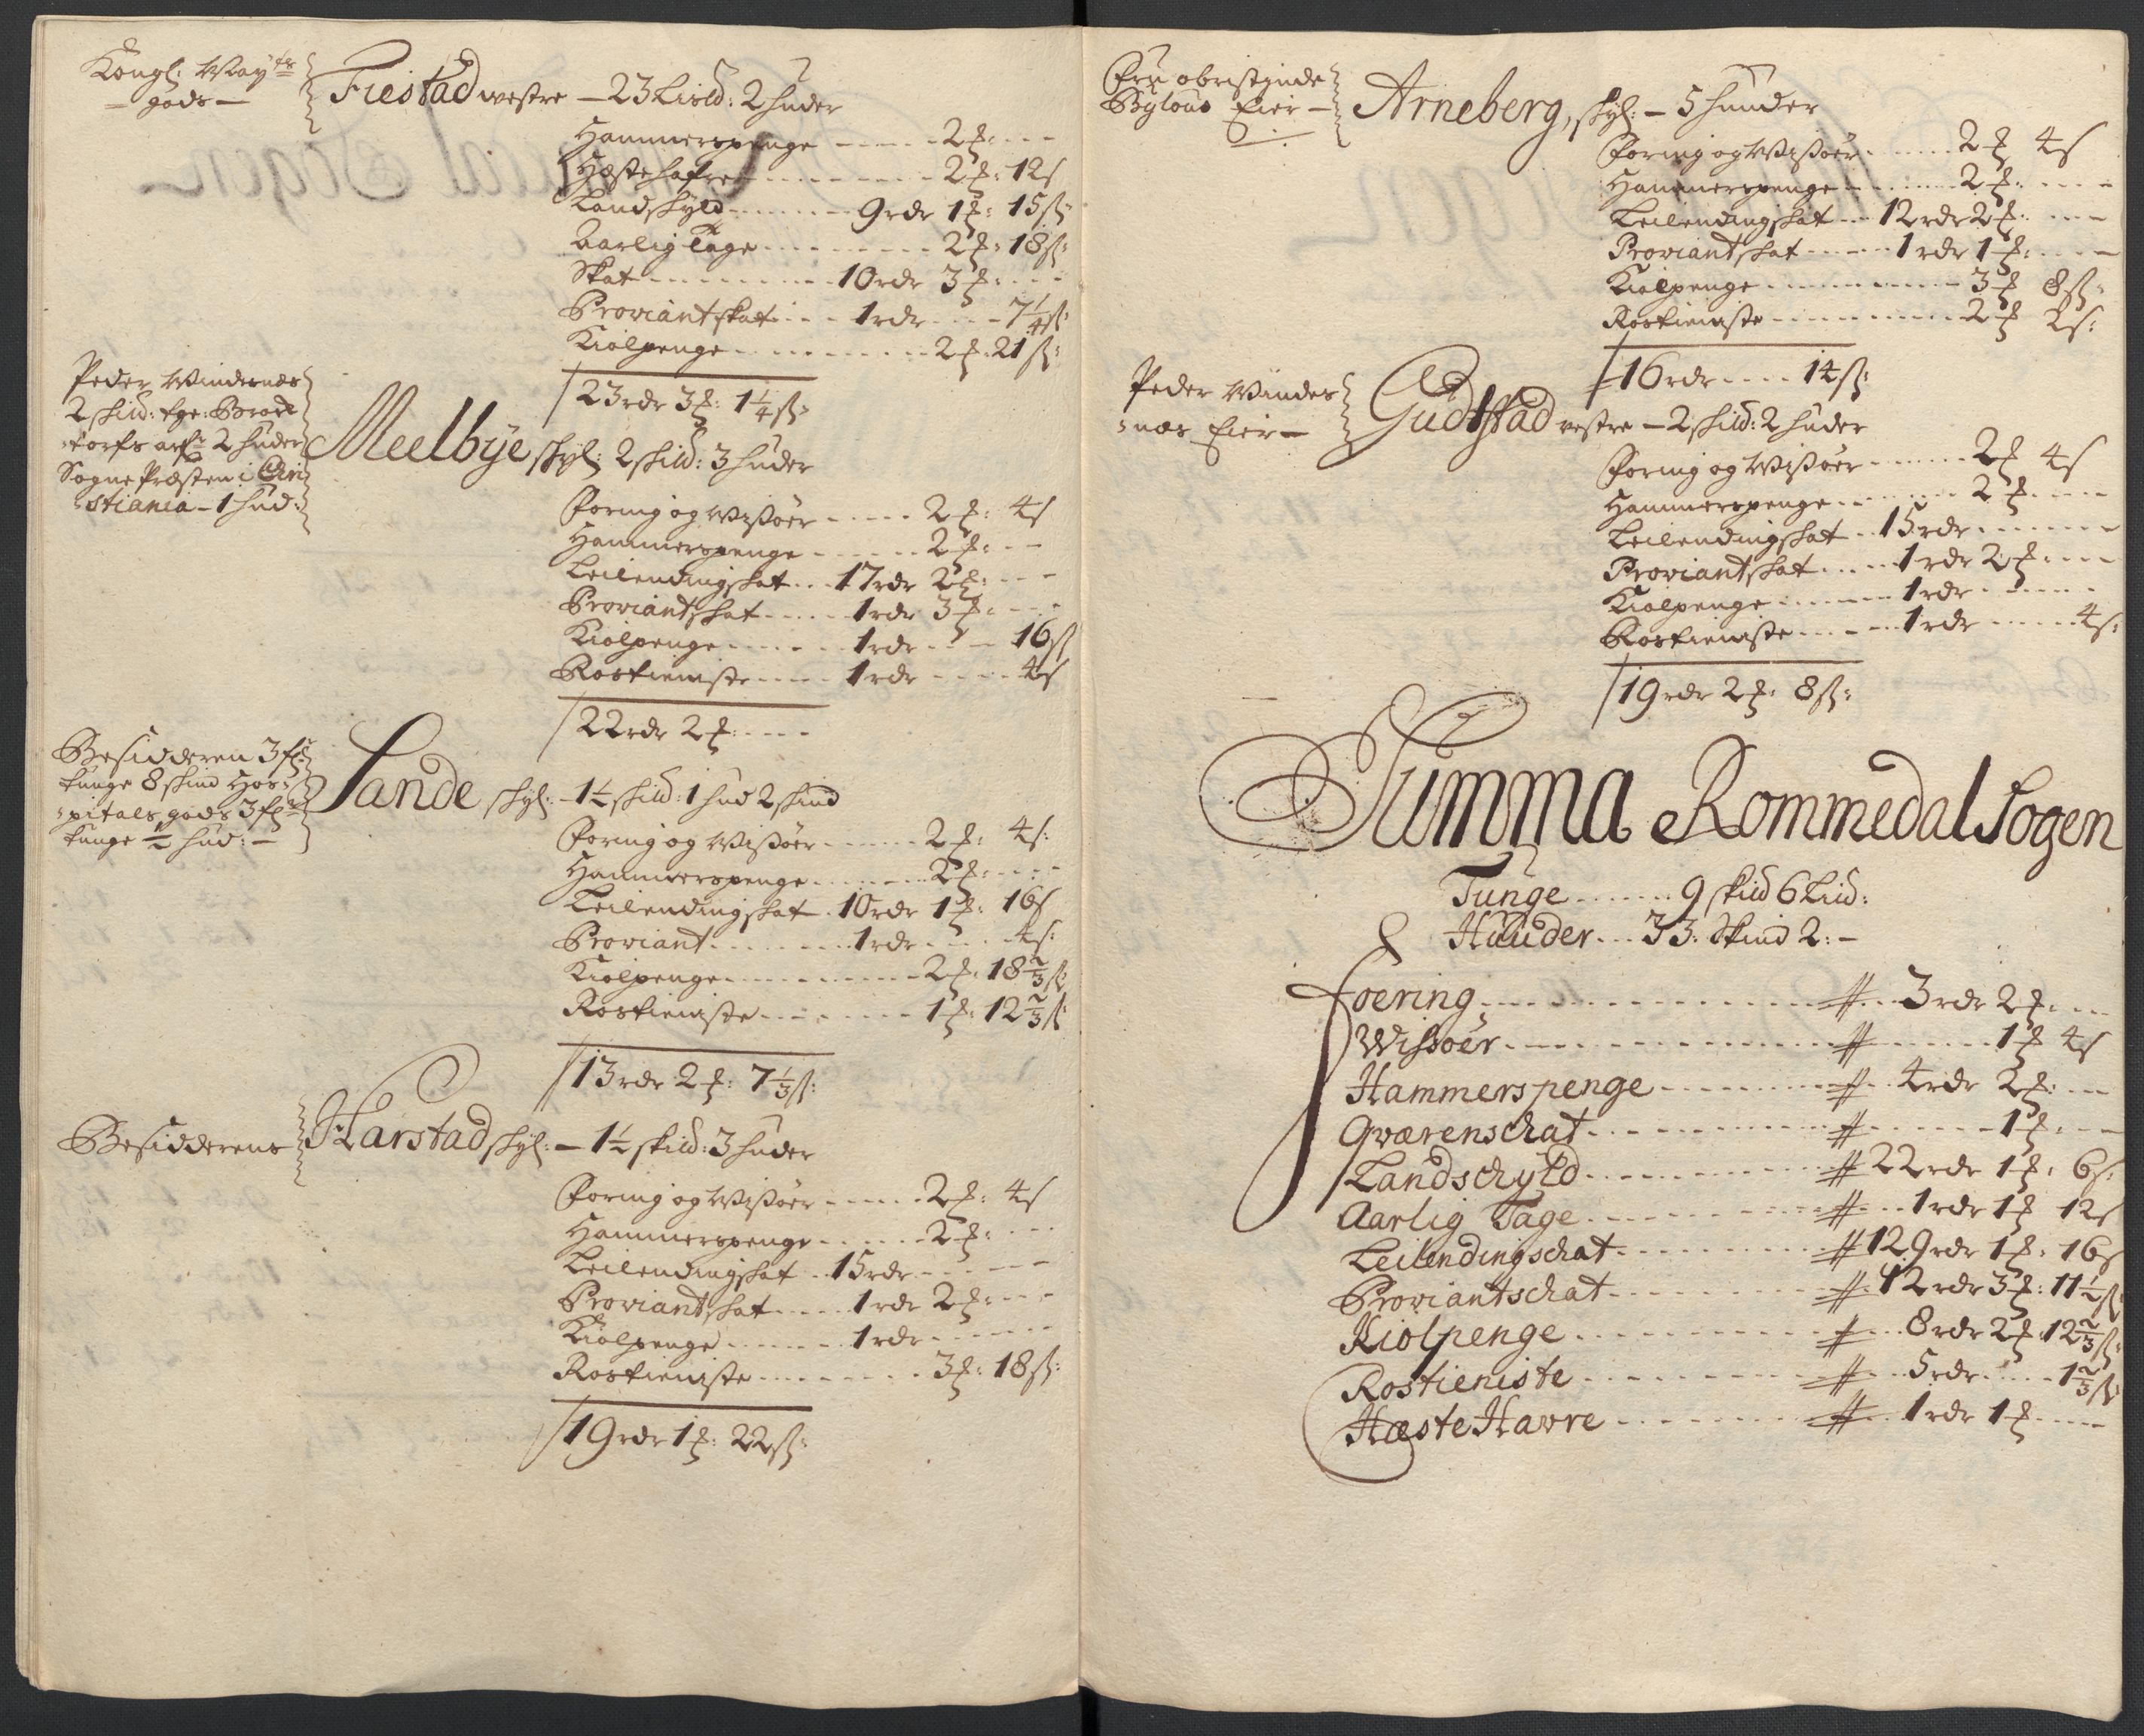 Kongl: May:ts
gods –
Fiestad westre – 23 Lisld: 2 huder
Hammerspenge - - - 2 ƶ: - - -
Hæstehafre - - - 2 ƶ: 12 s
Landskyld - - - 9 rdr 1 ƶ: 15 ß:
Aarlig Tage - - - 2 ƶ: 18 ß:
Skat - - - 10 rdr 3 ƶ: - -
Proviantskat - - - 1 rdr - - - 7 1/4 ß:
Kiølpenge - - - 2 ƶ: 21 ß:
23 rdr 3 ƶ: 1 1/4 ß:
Peder Windernæs
2 skild:
torfs arf: 2 huder
Sogne Præsten i Cri
stiania – 1 hud:
Meelbye skyl: 2 skild: 3 huder
Foring og Wißøer - - - 2 ƶ: 4 s
Hammerspenge - - - 2 ƶ: - -
Leilendingskat - - - 17 rdr 2 ƶ: - -
Proviantskat - - - 1 rdr 3 ƶ: - -
Kiølpenge - - - 1 rdr - - 16 ß
Rostieniste - - - 1 rdr - - - 4 s
22 rdr 2 ƶ: - - -
Besidderen 3 f:
tunge 8 skind Hos-
pitals gods 3 f:
tunge 1/2 hud: –
Sande skyl: – 1 1/2 skild: 1 hud 2 skind
Foring og Wißøer - - - 2 ƶ: 4 s:
Hammerspenge - - - 2 ƶ: - - -
Leilendingskat - 10 rdr 1 ƶ: 16 s
Proviant - - - 1 rdr - - - 4 s:
Kiølpenge - - - 2 ƶ: 18 2/3 ß:
Rostieniste - - - 1 ƶ: 12 2/3 ß
13 rdr 2 ƶ: 7 1/3 ß:
Besidderens
Harstad skyl: – 1 1/2 skild: 3 huder
Foring og Wißøer - - - 2 ƶ: 4 s
Hammerspenge - - - 2 ƶ: - -
Leilendingskat - - 15 rdr - - -
Proviantskat - - - 1 rdr 2 ƶ: - -
Kiølpenge - - - 1 rdr - - -
Rostieniste - - - 3 ƶ: 18 ß:
19 rdr 1 ƶ: 22 ß:
Fru obristinde
Bylous Eier –
Arneberg, skyl: – 5 hunder
Foring og Wißøer - - - 2 ƶ 4 s
Hammerspenge - - - 2 ƶ: - - -
Leilendingskat - - 12 rdr 2 ƶ: - - -
Proviantskat - - - 1 rdr 1 ƶ: - - -
Kiølpenge - - - 3 ƶ 8 ß:
Rostieniste - - - 2 ƶ 2 s:
16 rdr - - - 14 ß:
Peder Windes
næs Eier –
Gudstad westre – 2 skild: 2 huder
Foring og Wißøer - - - 2 ƶ 4 s
Hammerspenge - - - 2 ƶ: - - -
Leilendingskat - - 15 rdr - - -
Proviantskat - - - 1 rdr 2 ƶ: - - -
Kiølpenge - - - 1 rdr - - -
Rostieniste - - - 1 rdr - - - 4 s:
19 rdr 2 ƶ: 8 ß:
Summa Rommedal Sogen
Tunge - - - 9 skild 6 Lild:
Huuder - - - 33: Skind 2: –
Foering - - - # - - 3 rdr 2 ƶ: - -
Wißøer - - - # - - - 1 ƶ 4 s
Hammerspenge - - - # - - 4 rdr 2 ƶ: - -
Qværenschat - - - # - - - 1 ƶ: - -
Landschyld - - - # 22 rdr 1 ƶ: 6 s:
Aarlig Tage - - - # - - 1 rdr 1 ƶ 12 s
Leilendingschat - - - # 129 rdr 1 ƶ: 16 s
Proviantschat - - - # 12 rdr 3 ƶ: 11 1/2 ß:
Kiolpenge - - - # - - 8 rdr 2 ƶ 12 2/3 ß:
Rostieniste - - - # - - 5 rdr - - - 1 2/3 ß:
Hæste Havre - - - # - - 1 rdr 1 ƶ - - -